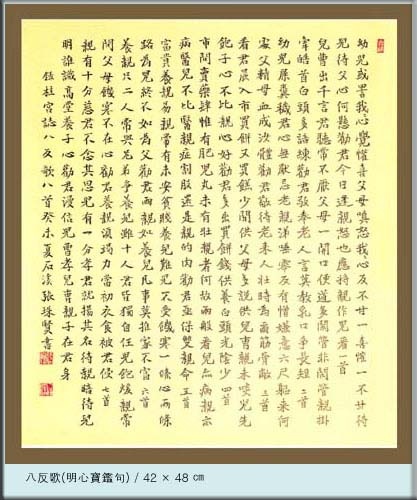 幼兒或詈我心覺懽喜父母嗔怒我心反不甘一喜懽一不甘待
兒待父心何懸勸君今日逢親怒也應將親作兒看一首
兒曹出千言君聽常不厭父母一開口便道多閑管非閑管親掛
牽皓首白頭多諳練勸君敬奉老人言莫敎乳口爭長短二首
幼兒尿糞穢君心無厭忌老親涕唾零反有憎嫌意六尺軀來何
處父精母血成汝體勸君敬待老來人壯時爲爾筋骨敝三首
看君晨入市買餠又買餻少聞供父母多說供兒曹親未啖兒先
飽子心不比親心好勸君多出買餠錢供養白頭光陰少四首
市間賣藥肆惟有肥兒丸未有壯親者何故兩般看兒亦病親亦
病醫兒不比醫親症割股還是親的肉勸君亟保雙親命五首
富貴養親易親常有未安貧賤養兒難兒不受饑寒一條心兩條
路爲兒終不如爲父勸君兩親如養兒凡事莫推家不富六首
養親只二人常與兄弟爭養兒雖十人君皆獨自任兒飽煖親常
問父母饑寒不在心勸君養親須竭力當初衣食被君侵七首
親有十分慈君不念其恩兒有一分孝君就揚其名待親暗待兒
明誰識高堂養子心勸君漫信兒曹孝兒曹親子在君身
錄桂宮誌八反歌八首癸未夏石張珠賢書
八反歌(明心寶鑑句) / 42 × 48 ㎝